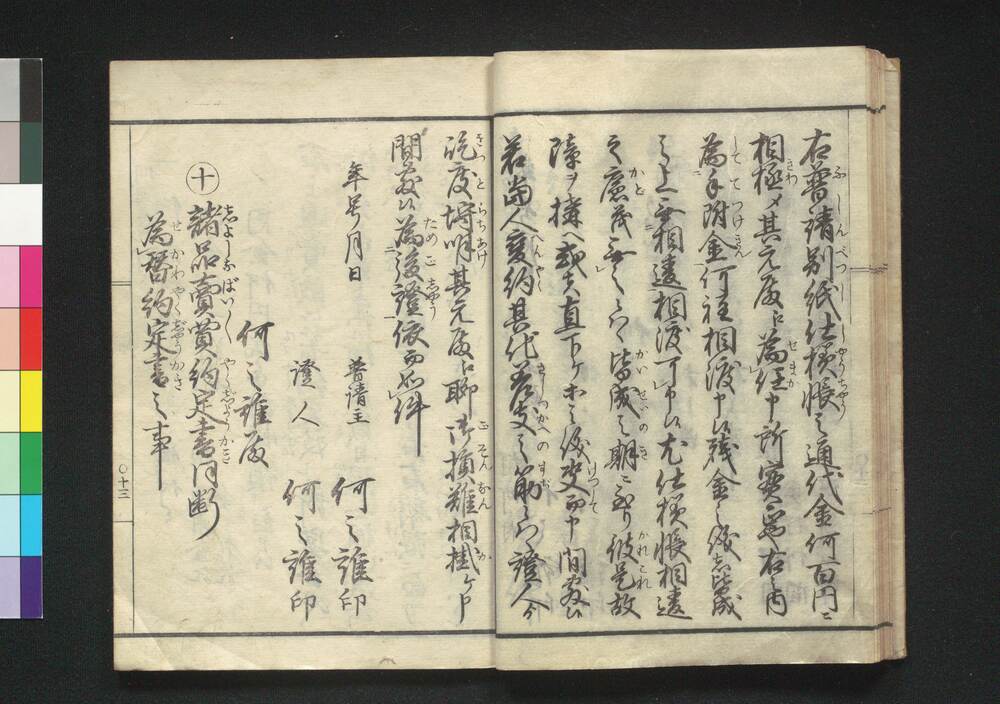 右普請別紙仕様帳之通代金何百円ニ
相極メ其元殿江為任申所実正也右之内
為手附金何程相渡申候残金之儀者皆成
之上無相違相渡可申候尤仕様帳相違
之廉茂無之候ハヽ皆成之期ニ至り彼是故
障ヲ構へ或者直下ケ等之儀決而申間敷候
若当人変約其他差支之筋候ハヽ證人より
屹度埒明其元殿江聊御損難相掛ケ申
間敷候為後證依而如件
年号月日
普請主 何之誰印
證人 何之誰印
何之誰殿
十 諸品売買約定書同断
為替約定書之事
〇十三